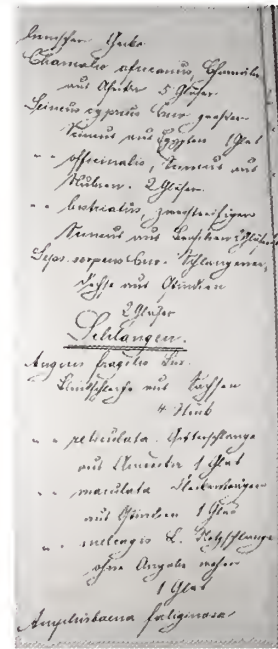 Chamaeleo africanus, Chamäleon
aus Afrika 5 Gläser.
Scincus cyprius Cuv. großer
Scincus aus Egypten 1 Glas
" " officinalis, Scincus aus
Nubien. 2 Gläser.
" " bistriatus, zweistreifiger
Scincus aus Brasilien 2 Gläser
Seps serpens Cuv. Schlangen-
aus Ostindien
2 Gläser
Schlangen.
Anguis fragilis Lin.
Blindschleiche aus Sachsen
4 Stück
" " reticulata. Netzschlange
aus Amerika 1 Glas
" " maculata
aus Ostindien 1 Glas
" " meleagris L.
ohne Angabe woher
1 Glas
Amphisbaena fuliginosa